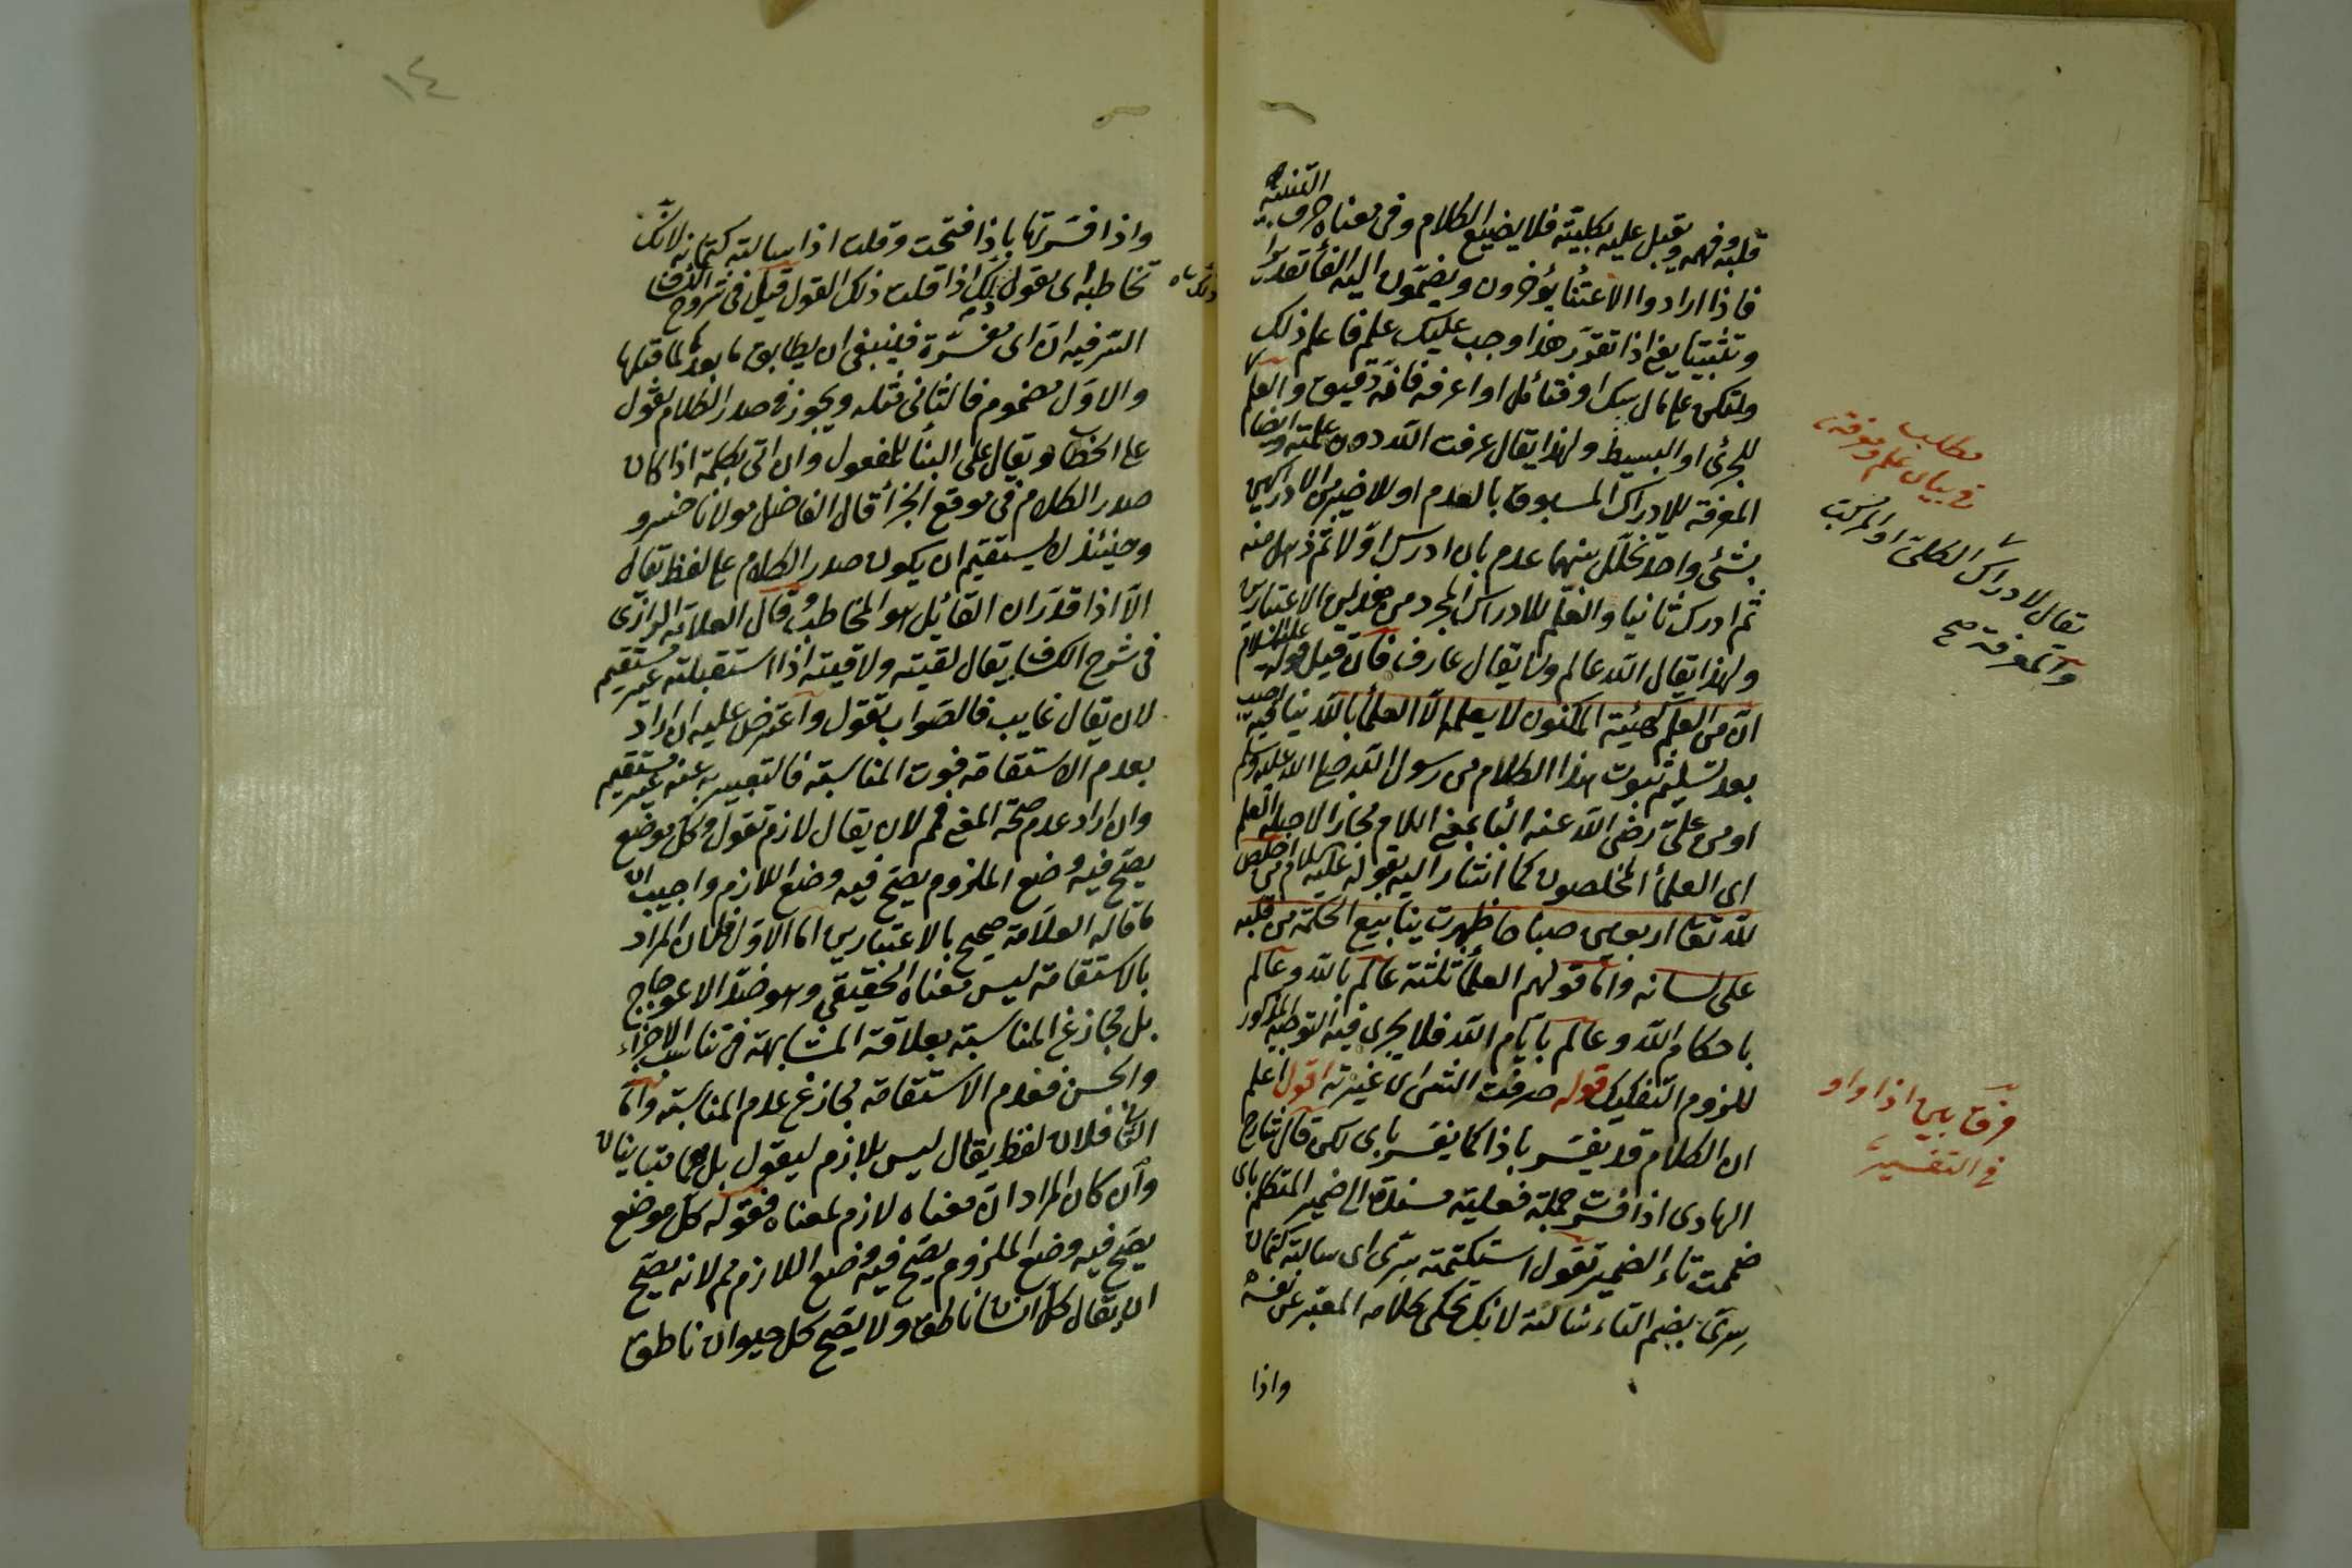 التنبيه
قلبه وفهمه ويقبل عليه بكليته فلا يضيع الكلام وفى معناه حرف
فاذا ارادوا الاعتنأ يؤخرون ويضمون اليه الفأ تقديرا
وتثبيتا يعنى اذا تقرر هذا وجب عليك علم فاعلم ذلك
وليكن على بالك او فتأمل او اعرفه فانه دقيق والعلم
للجزئى او البسيط ولهذا يقال عرفت الله دون علمته وايضا
المعرفة للادراك المسبوق بالعدم او للاخير من الادراكين
بشئ واحد تخلل بينهما عدم بان ادرك اولا ثم ذهل عنه
ثم ادرك ثانيا والعلم للادراك المجرد من هذين الاعتبارين
ولهذا يقال الله عالم ولا يقال عارف فان قيل قوله عليه السلام
ان من العلم كهيئة المكنون لا يعلمه الا العلمأ بالله ينافيه اجيب
بعد تسليم ثبوت هذا الكلام من رسول الله صلى الله عليه وسلم
او من على رضى الله عنه البأ بمعنى اللام مجازا لاجله العلم
اى العلمأ المخلصون كما اشار اليه بقوله عليه السلام من اخلص
لله تعا اربعين صباحا ظهرت ينابيع الحكمة من قلبه
على لسانه واما قولهم العلمأ ثلثة عالم بالله وعالم
باحكام الله وعالم بايام الله فلا يجرى فيه التوجيه المذكور
للزوم التفكيك قوله صرفت الشئ اى غيرته اقول اعلم
ان الكلام قد يفسر باذا كما يفسر باى لكن قال شارح
الهادى اذا فسرت جملة فعلية مسندة الى ضمير المتكلم باى
ضممت تاء الضمير تقول استكتمته سرى اى سالته كتمان
سرى بضم التاء سالته لانك تحكى كلامه المعبر عن نفسه
واذا
مطلب
فى بيان علم ومعرفة
يقال لادراك الكلى او المركب
والمعرفة صح
فرق بين اذا واو
فى التفسير
١٤
واذا فسرتها باذا فتحت وقلت اذا سالته كتمانه لانك
تخاطبه اى تقول ذلك اذا قلت ذلك القول قيل فى شروح الكشاف
السر فيه ان اى مفسرة فينبغى ان يطابق ما بعدها لما قبلها
والاول مضموم فالثانى مثله ويجوز فى صدر الكلام تقول
على الخطاب ويقال على البنأ للمفعول وان اتى بكلمة اذا كان
صدر الكلام فى موقع الجزأ قال الفاضل مولانا خسرو
وحينئذ لا يستقيم ان يكون صدر الكلام على لفظ يقال
الا اذا قدر ان القائل هو المخاطب وقال العلامة الرازى
فى شرح الكشاف يقال لقيته ولاقيته اذا استقبلته غير مستقيم
لان يقال غايب فالصواب تقول واعترض عليه ان اراد
بعدم الاستقامة فوت المناسبة فالتعبير به عنه غير مستقيم
وان اراد عدم صحة المعنى فمم لان يقال لازم تقول وكل موضع
يصح فيه وضع الملزوم يصح فيه وضع اللازم واجيب ان
ما قاله العلامة صحيح بالاعتبارين اما الاول فلان المراد
بالاستقامة ليس معناه الحقيقى وهو ضد الاعوجاج
بل مجاز عن المناسبة بعلاقة المشابهة فى تناسب الاجزاء
والحسن فعدم الاستقامة مجاز عن عدم المناسبة واما
الثانى فلان لفظ يقال ليس بلازم ليقول بل هما متباينان
وان كان المراد ان معناه لازم لمعناه فقوله كل موضع
يصح فيه وضع الملزوم يصح فيه وضع اللازم مم لانه يصح
ان يقال كل انسان ناطق ولا يصح كل حيوان ناطق